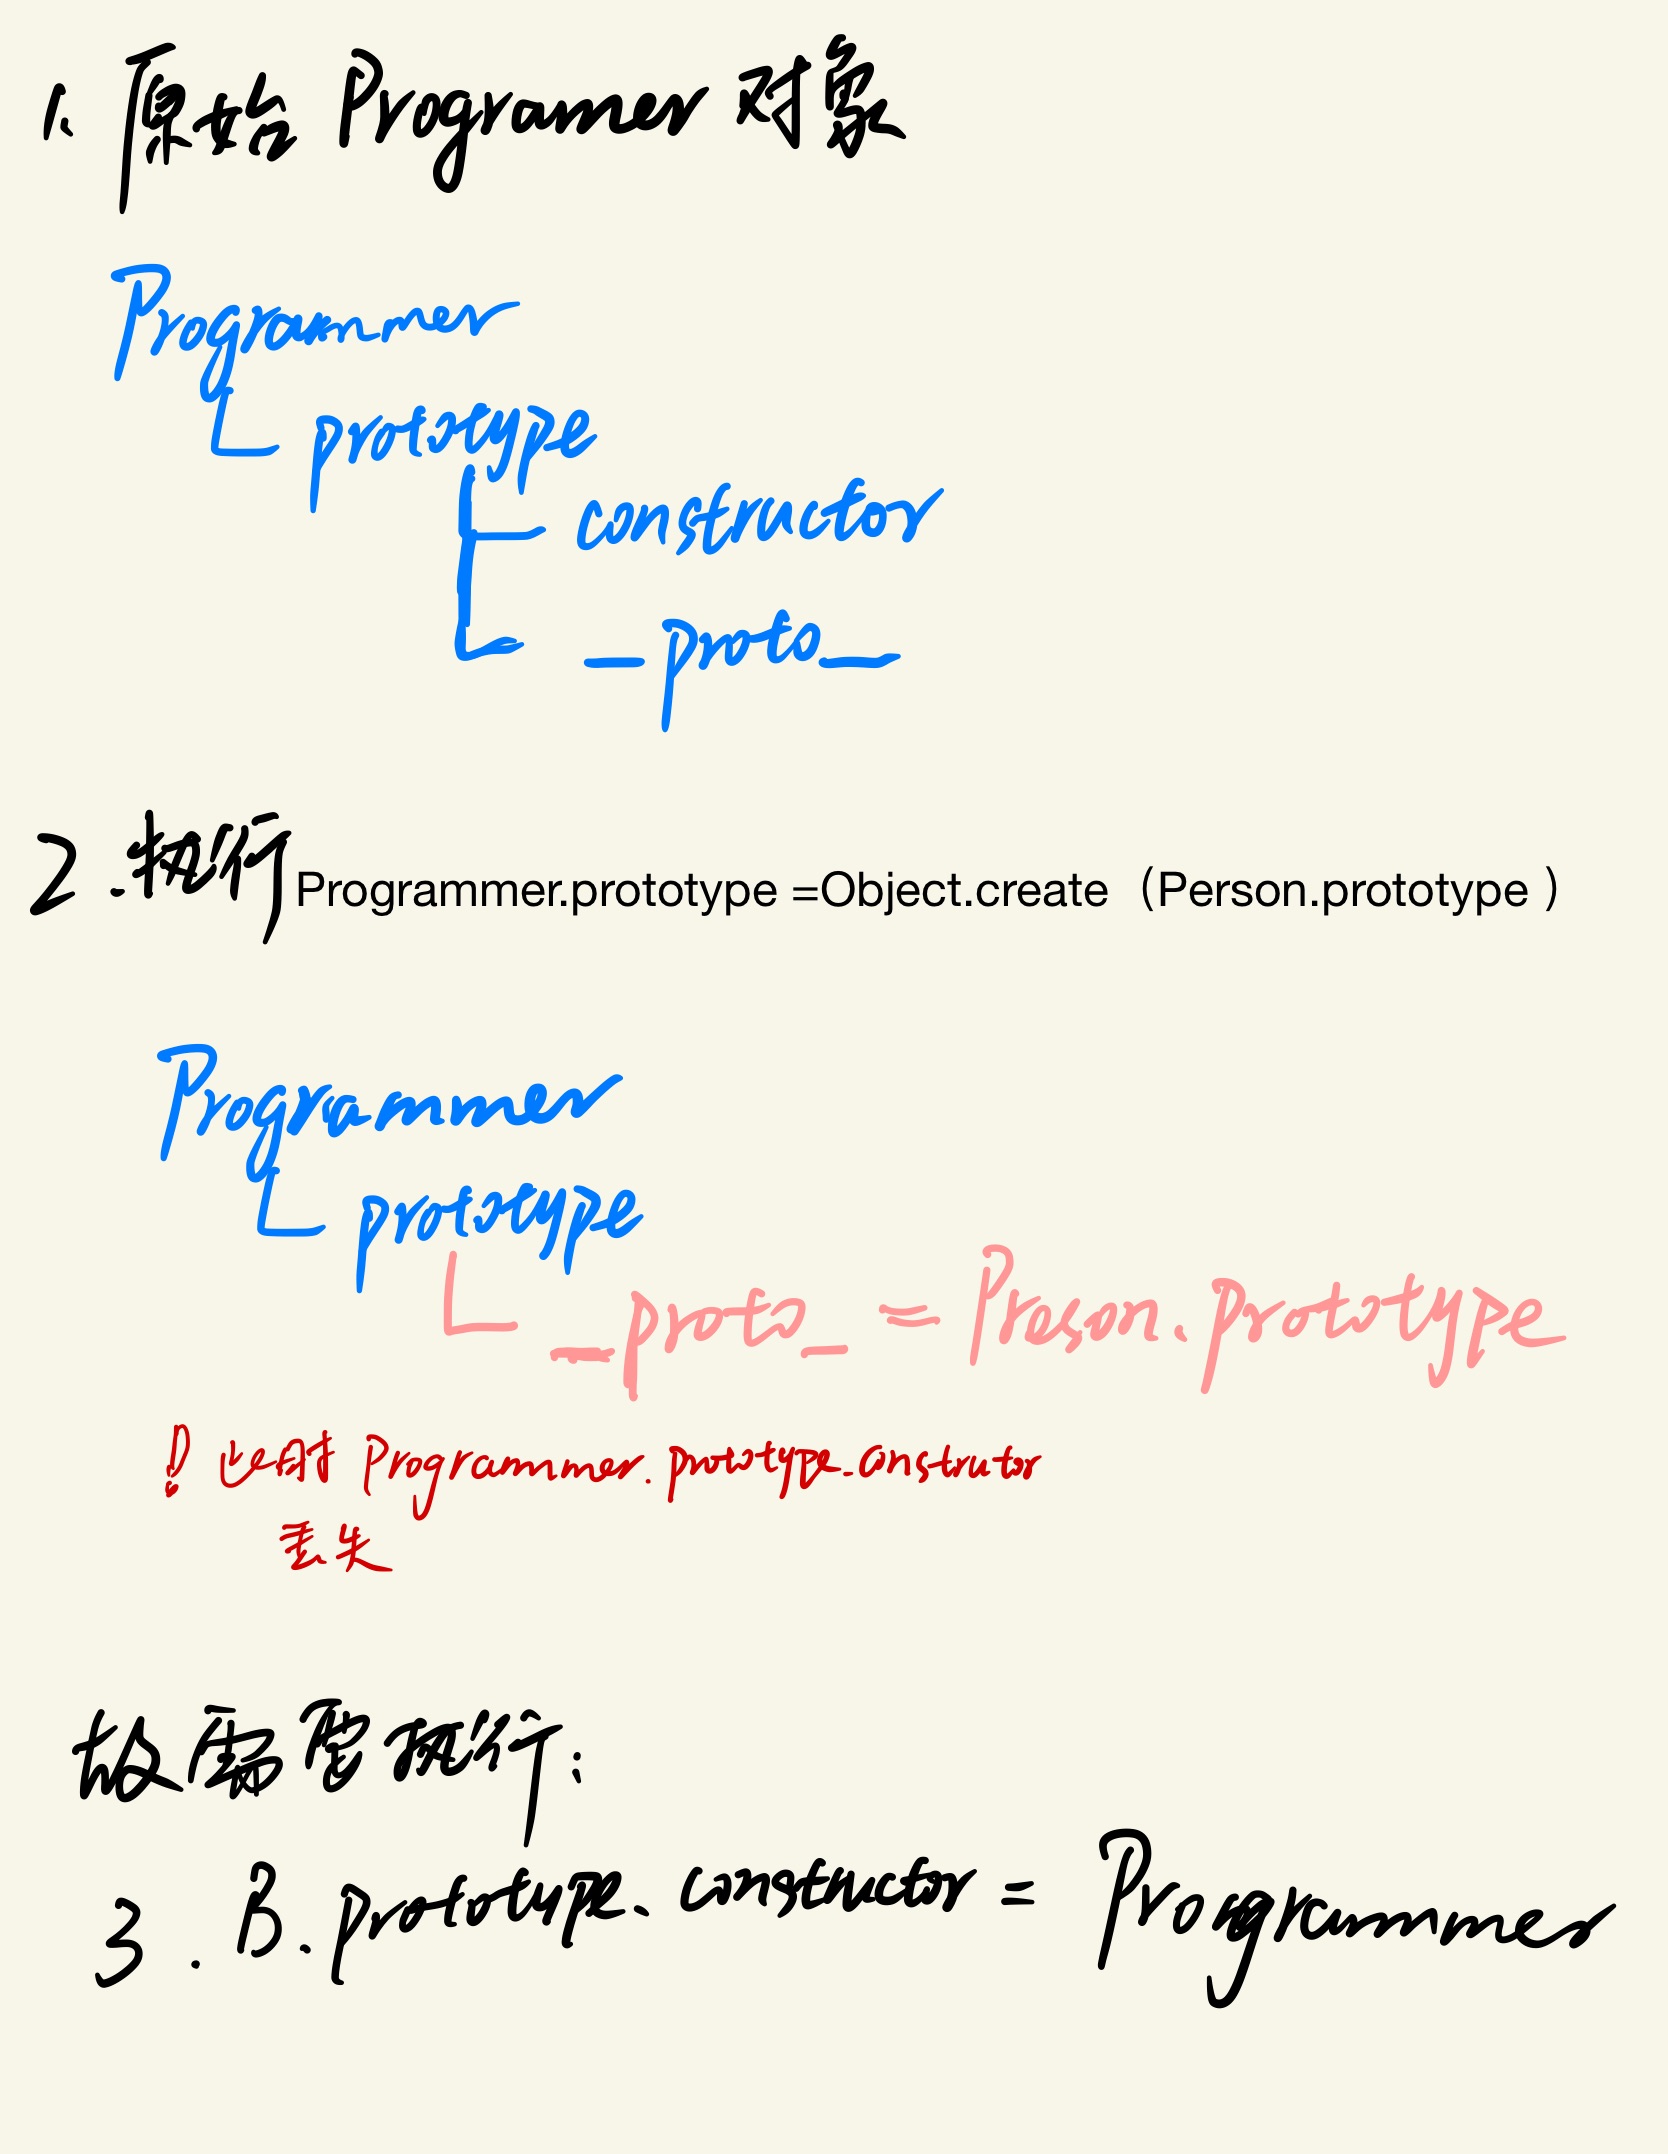 1. 原始 Programer 对象
Programmer
prototype
constructor
_proto_
2.执行Programmer.prototype =Object.create（Person.prototype ）
Programmer
prototype
_proto_ = Preson.prototype
! 此时 Programmer.prototype.construtor
丢失
故需要执行:
3. B.prototype.constructor = Programmer